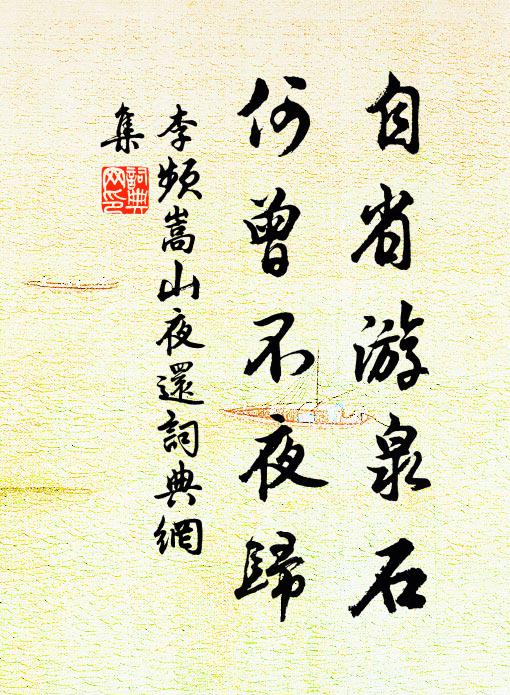 自省游泉石
何曾不夜歸
李頻嵩山夜還詞典網
集
詞典
网印